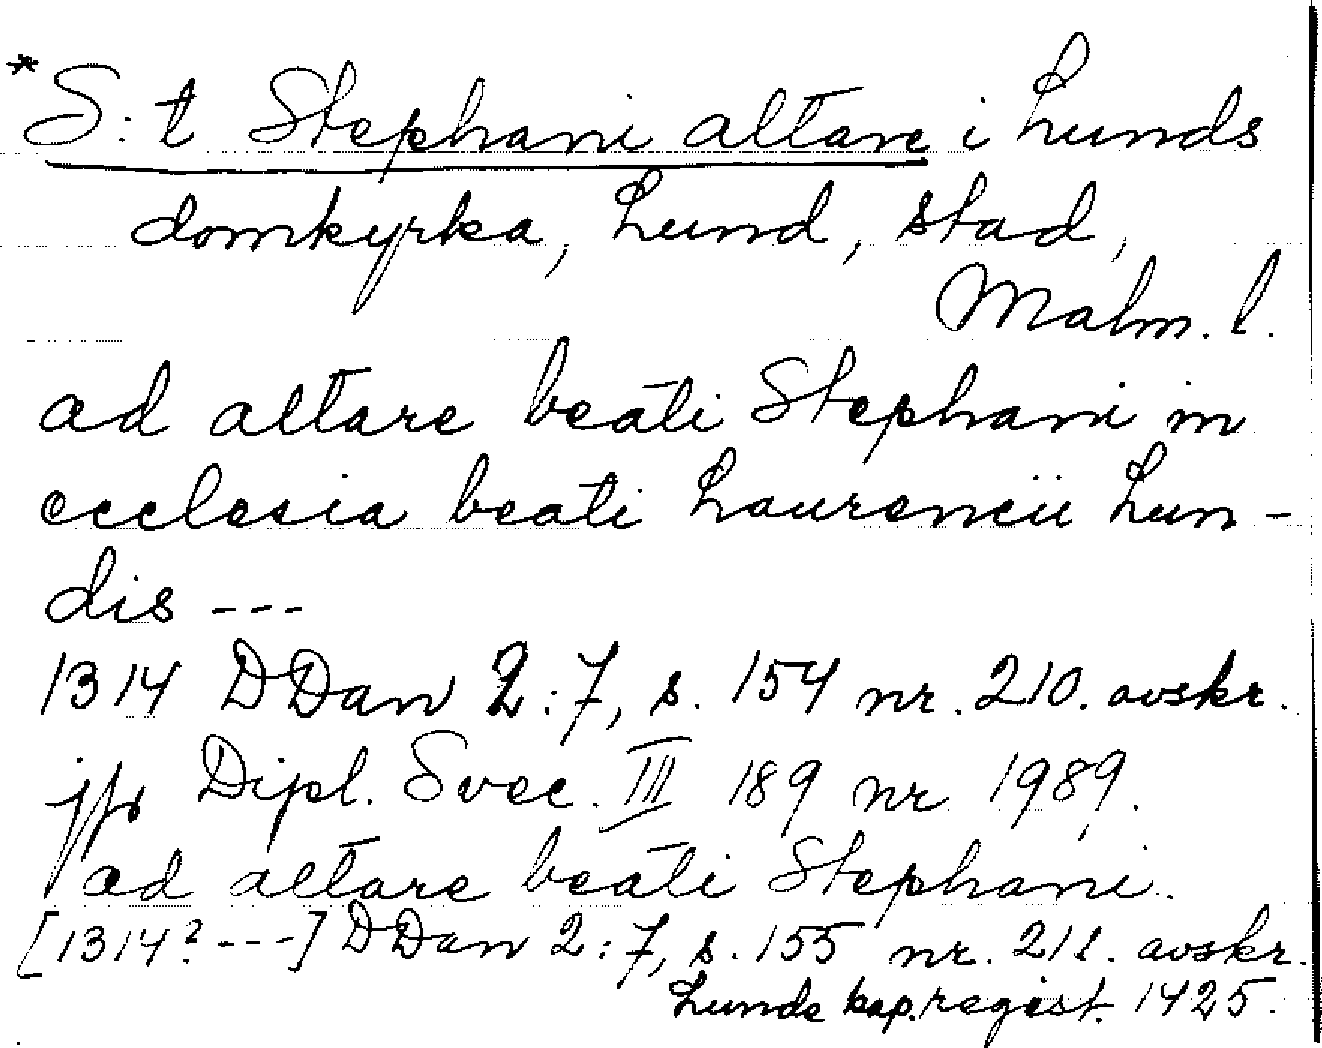 *S:t Stephani altare i Lunds
domkyrka, Lund, stad,
Malm. l.
ad altare beati Stephani in
ecclesia beati Laurencii Lun-
dis ---
1314 DDan 2:7, s. 154 nr. 210. avskr.
jfr Dipl. Svec. III 189 nr 1989.
ad altare beati Stephani.
[1314? ---] DDan 2:7, s. 155 nr. 211. avskr.
Lunde kap.regist. 1425.